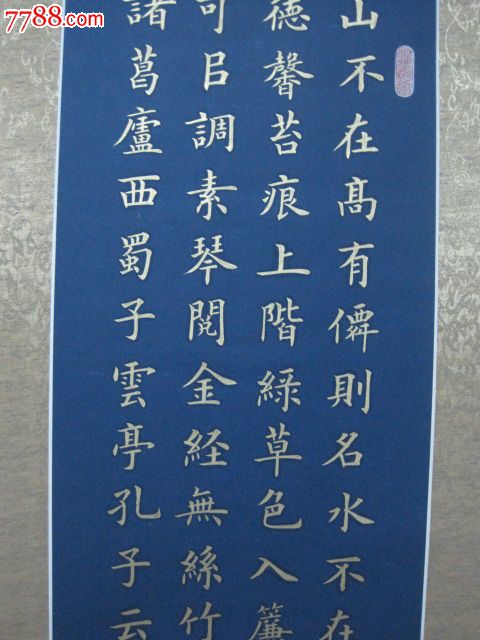 7788.com
山不在高有僊則名水不在
德馨苔痕上階綠草色入簾
可㠯調素琴閱金経無絲竹
諸葛廬西蜀子雲亭孔子云